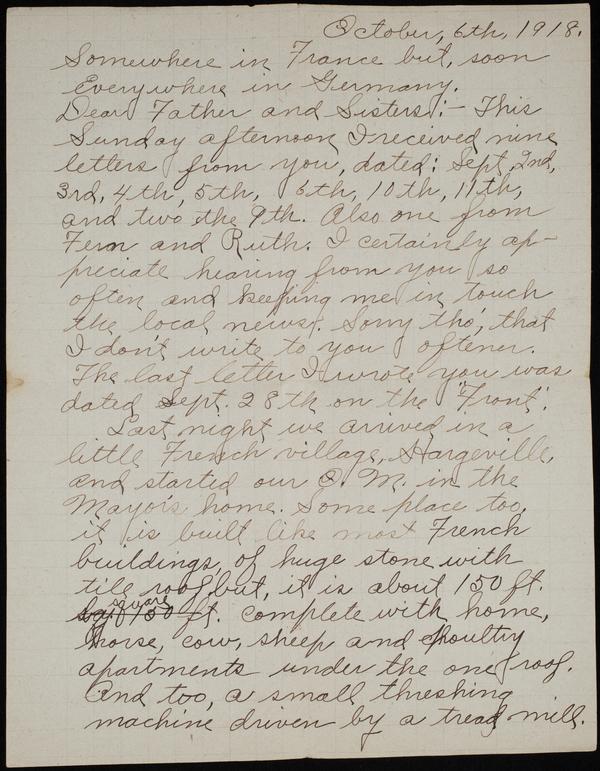 October, 6th, 1918.
Somewhere in France but, soon
Everywhere in Germany.
Dear Father and Sisters:- This
Sunday afternoon I received nine
letters from you, dated: Sept, 2nd,
3rd, 4th, 5th, 6th, 10th, 11th,
and two the 9th. Also one from
Fern and Ruth. I certainly ap-
preciate hearing from you so
often and keeping me in touch
the local news. Sorry tho', that
I don't write to you oftener.
The last letter I wrote you was
dated Sept. 28th on the "Front".
Last night we arrived in a
little French village, Hargeville,
and started our O. M. in the
Mayor's home. Some place too,
it is built like most French
buildings, of huge stone with
tile roof, but, it is about 150 ft.
square
150 ft. complete with home,
horse, cow, sheep and poultry
apartments under the one roof.
And too, a small threshing
machine driven by a tread mill.